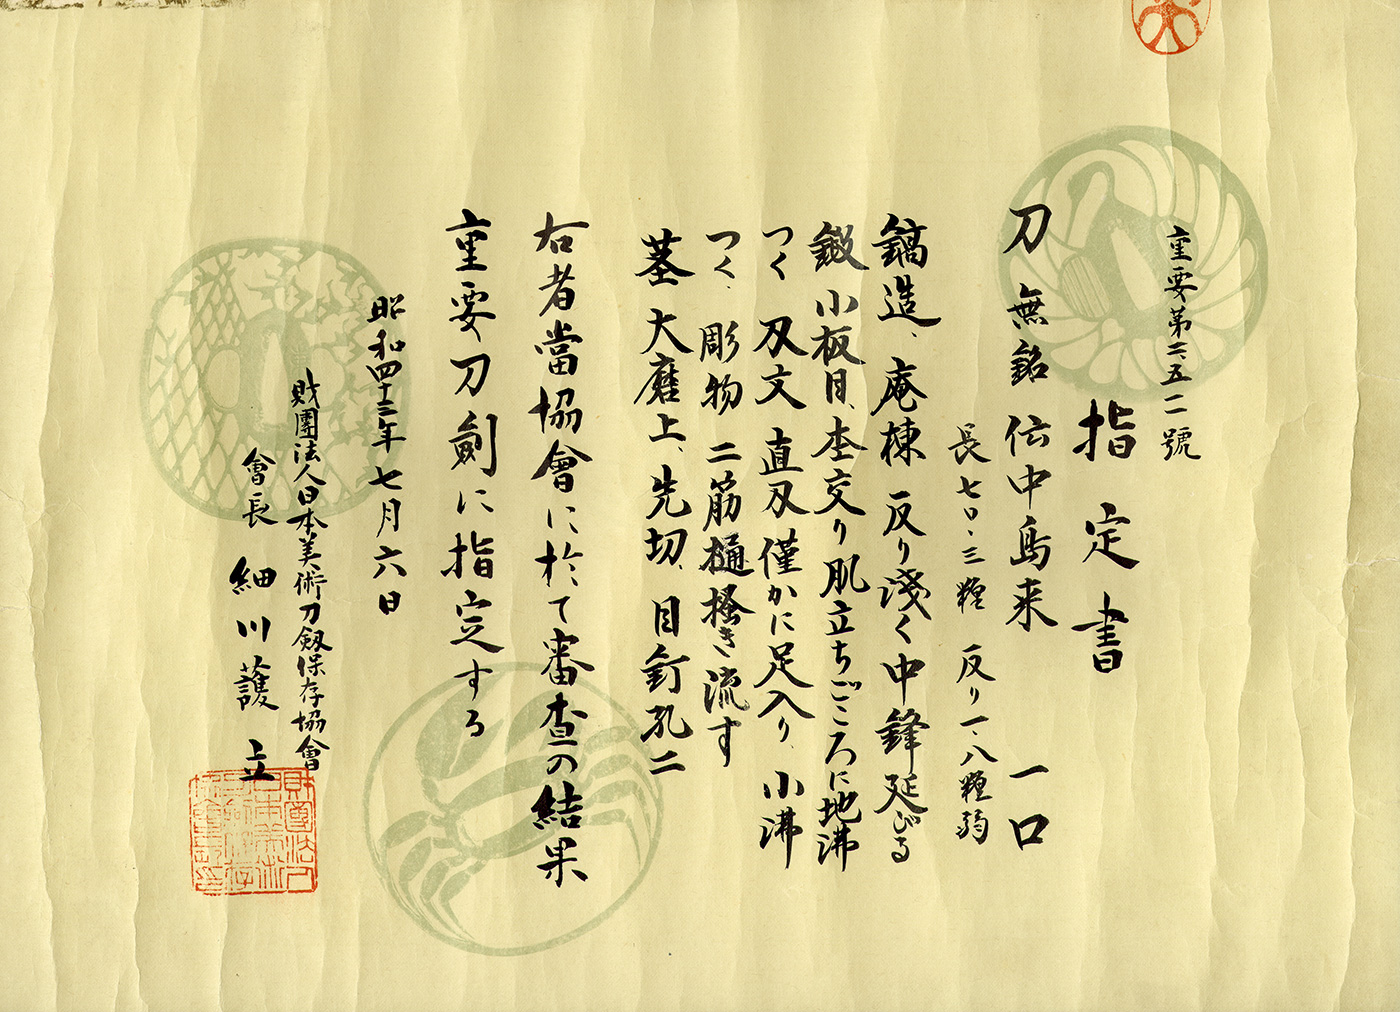 重要第二五一二號
指定書
刀 無銘 伝中島来 一口
長七〇・三糎 反り一、八糎弱
鎬造、庵棟 反り淺く中鋒延びる
鍛 小板目、杢交り肌立ちごころに地沸
つく 刃文 直刃僅かに足入り、小沸
つく、彫物 二筋樋搔き流す
茎 大磨上、先切、目釘孔二
右者當協會に於て審査の結果
重要刀剣に指定する
昭和四十三年七月六日
財團法人日本美術刀劔保存協會
會長 細川護立